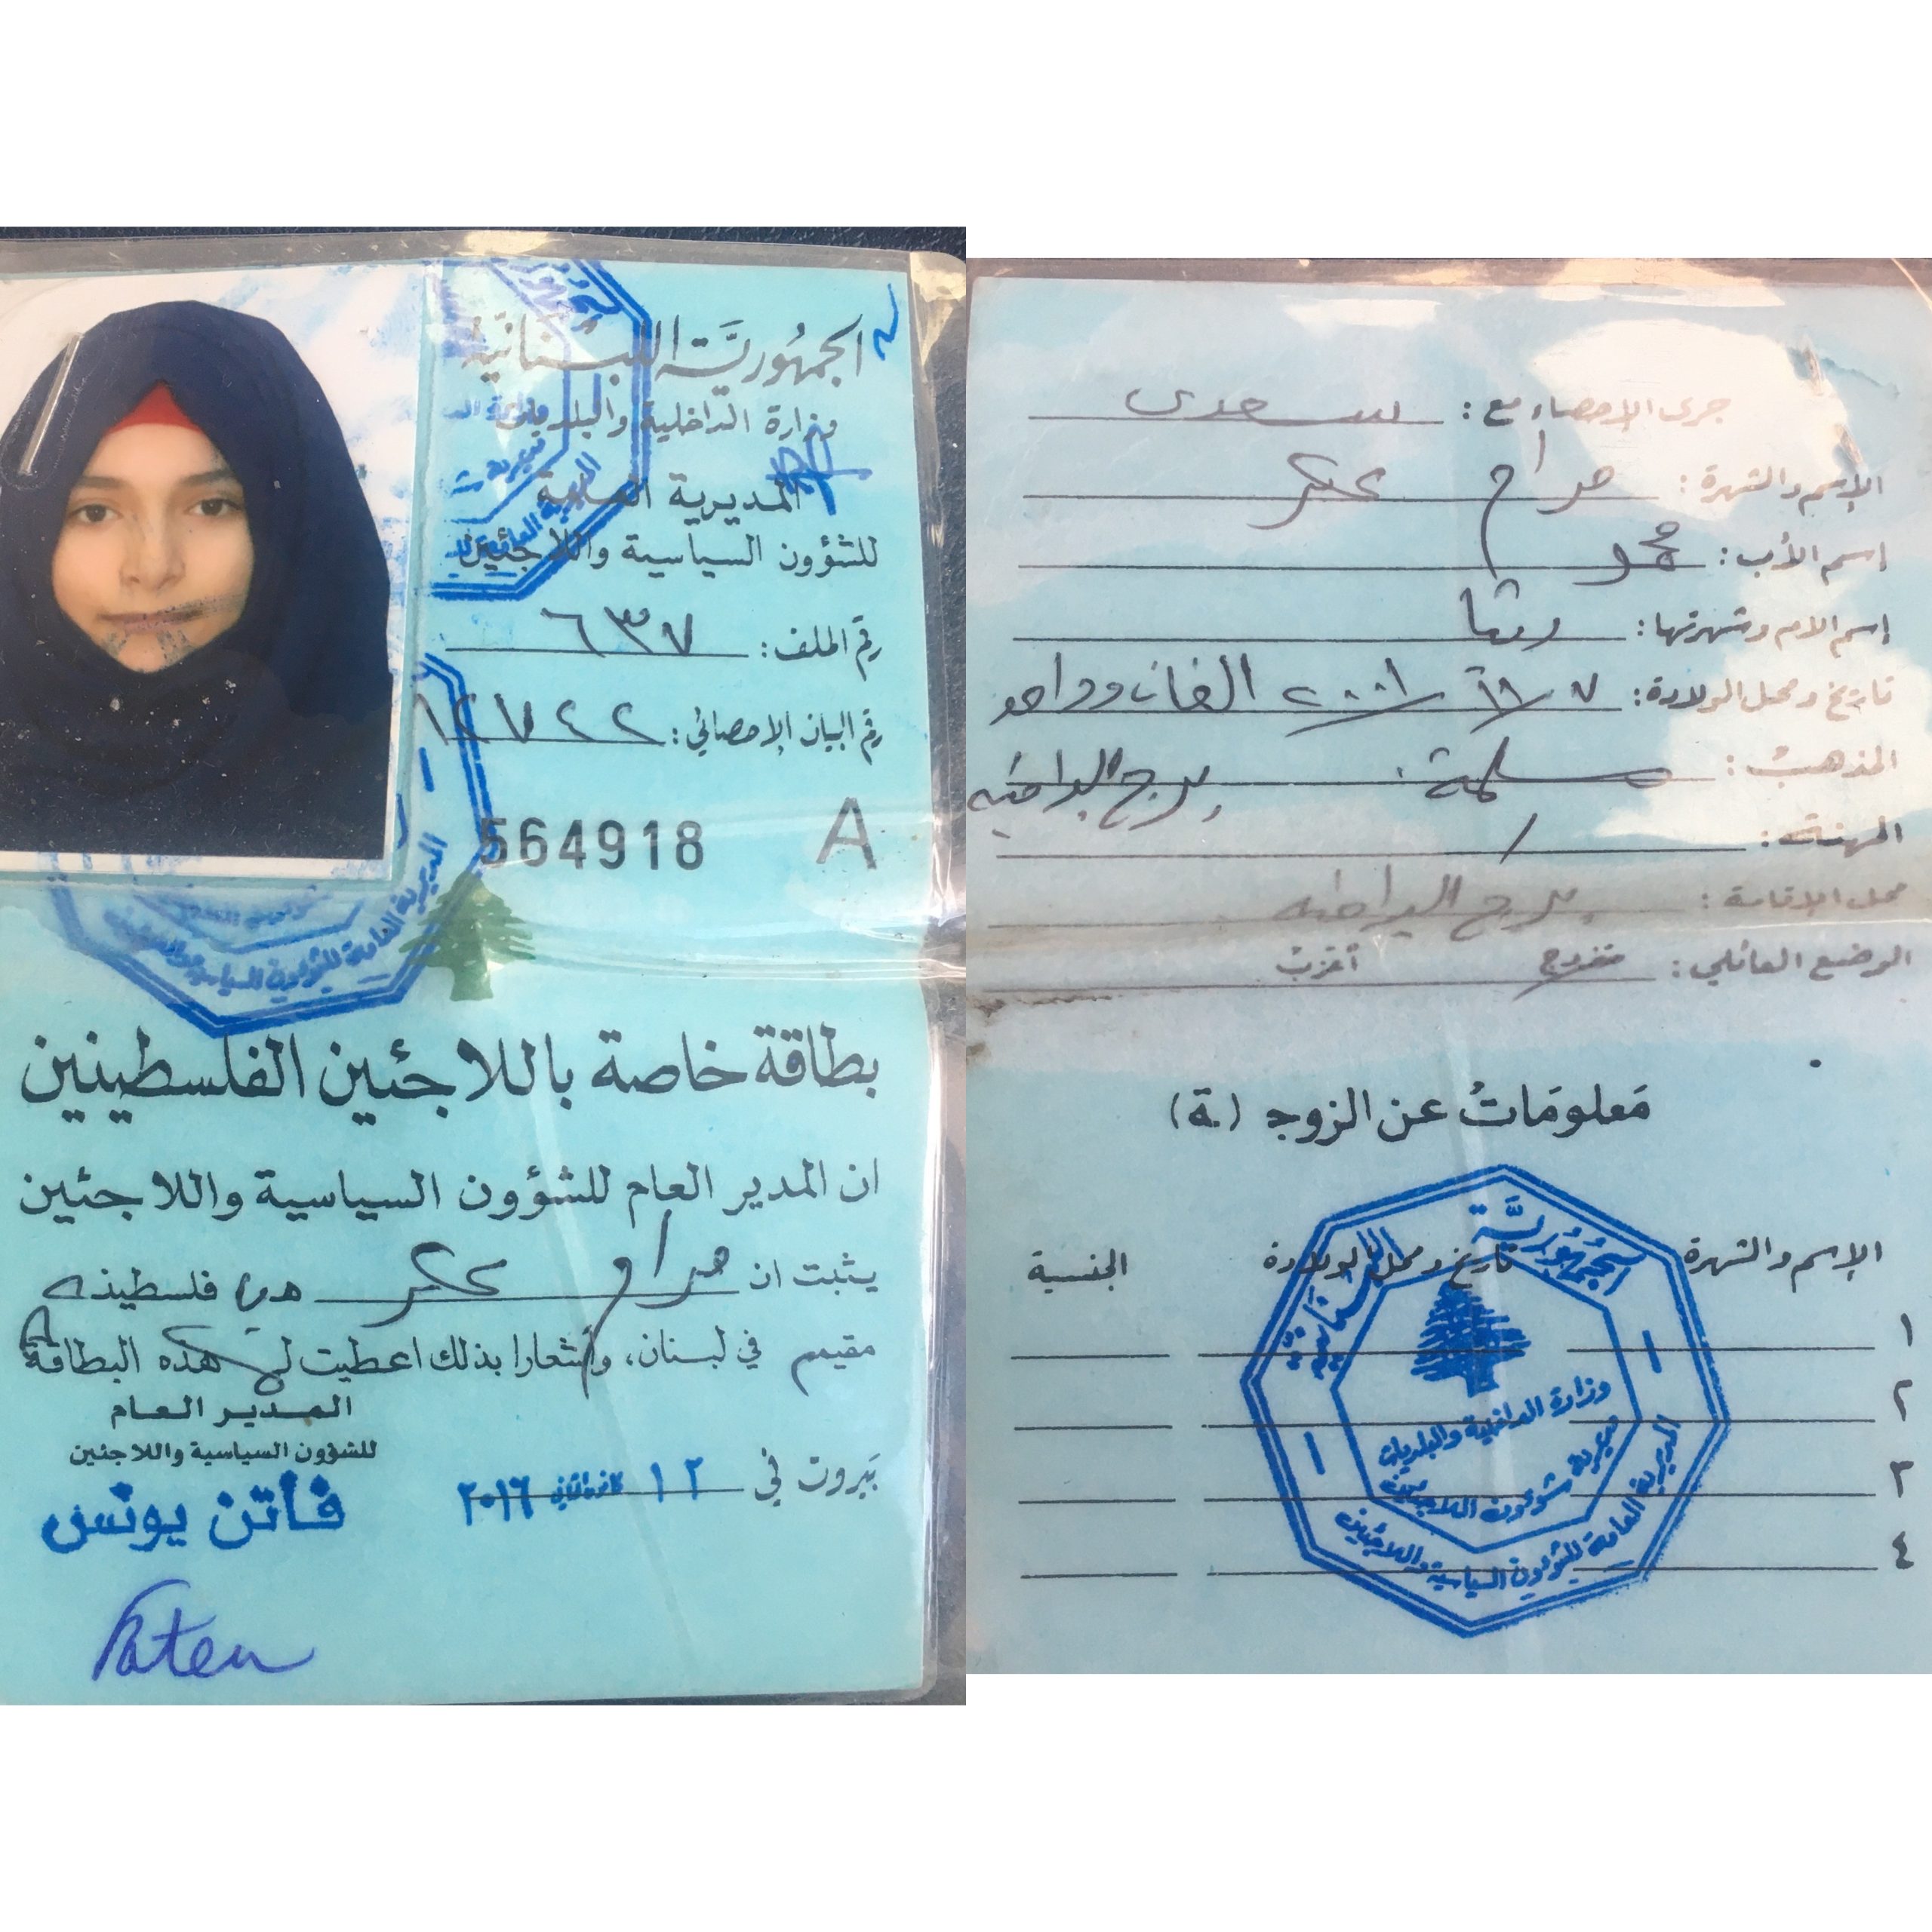 الجمهورية اللبنانية
وزارة الداخلية والبلديات
المديرية العامة
للشؤون السياسية واللاجئين
رقم الملف: ٦٣٧
رقم البيان الإحصائي:
564918 A
بطاقة خاصة باللاجئين الفلسطينيين
ان المدير العام للشؤون السياسية واللاجئين
يثبت ان مرام عكر من فلسطين
مقيم في لبنان، واشعارا بذلك اعطيت له هذه البطاقة
المدير العام
للشؤون السياسية واللاجئين
فاتن يونس
بيروت في ١٢ كانون الثاني ٢٠١٦
Faten
جرى الإحصاء مع: سعدى
الإسم والشهرة: مرام عكر
إسم الأب: محمد
إسم الام وشهرتها: رشا
تاريخ ومحل الولادة: ٢٠٠١ الفان وواحد
المذهب: مسلمة برج البراجنه
المهنة: /
محل الإقامة: برج البراجنه
الوضع العائلي: متزوج أعزب
معلومات عن الزوج (ة)
الإسم والشهرة تاريخ ومحل الولادة الجنسية
١
٢
٣
٤
الجمهورية اللبنانية
وزارة الداخلية والبلديات
مديرية شؤون اللاجئين
المديرية العامة للشؤون السياسية واللاجئين